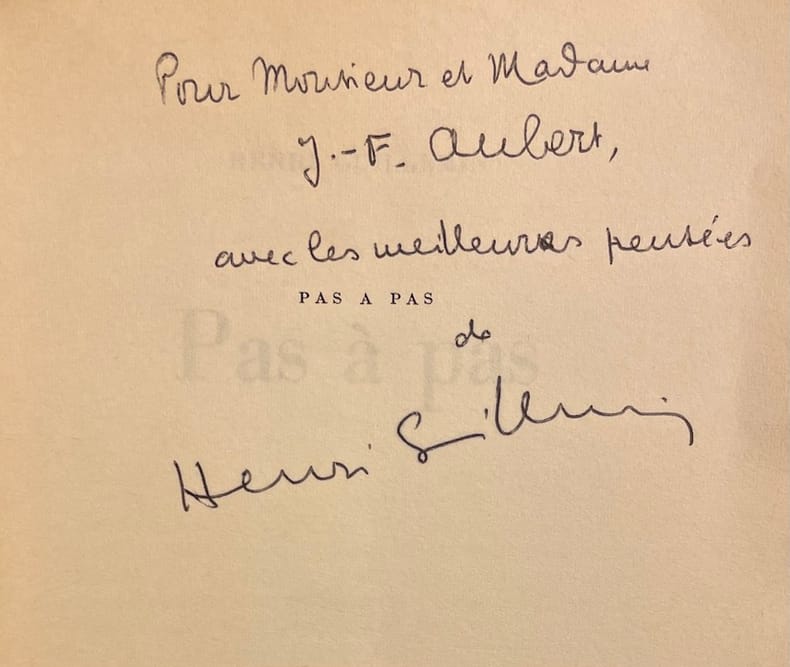 Pour Monsieur et Madame
J.-F. Aubert,
avec les meilleures pensées
PAS A PAS
de
Pas à pas
Henri Guillemin